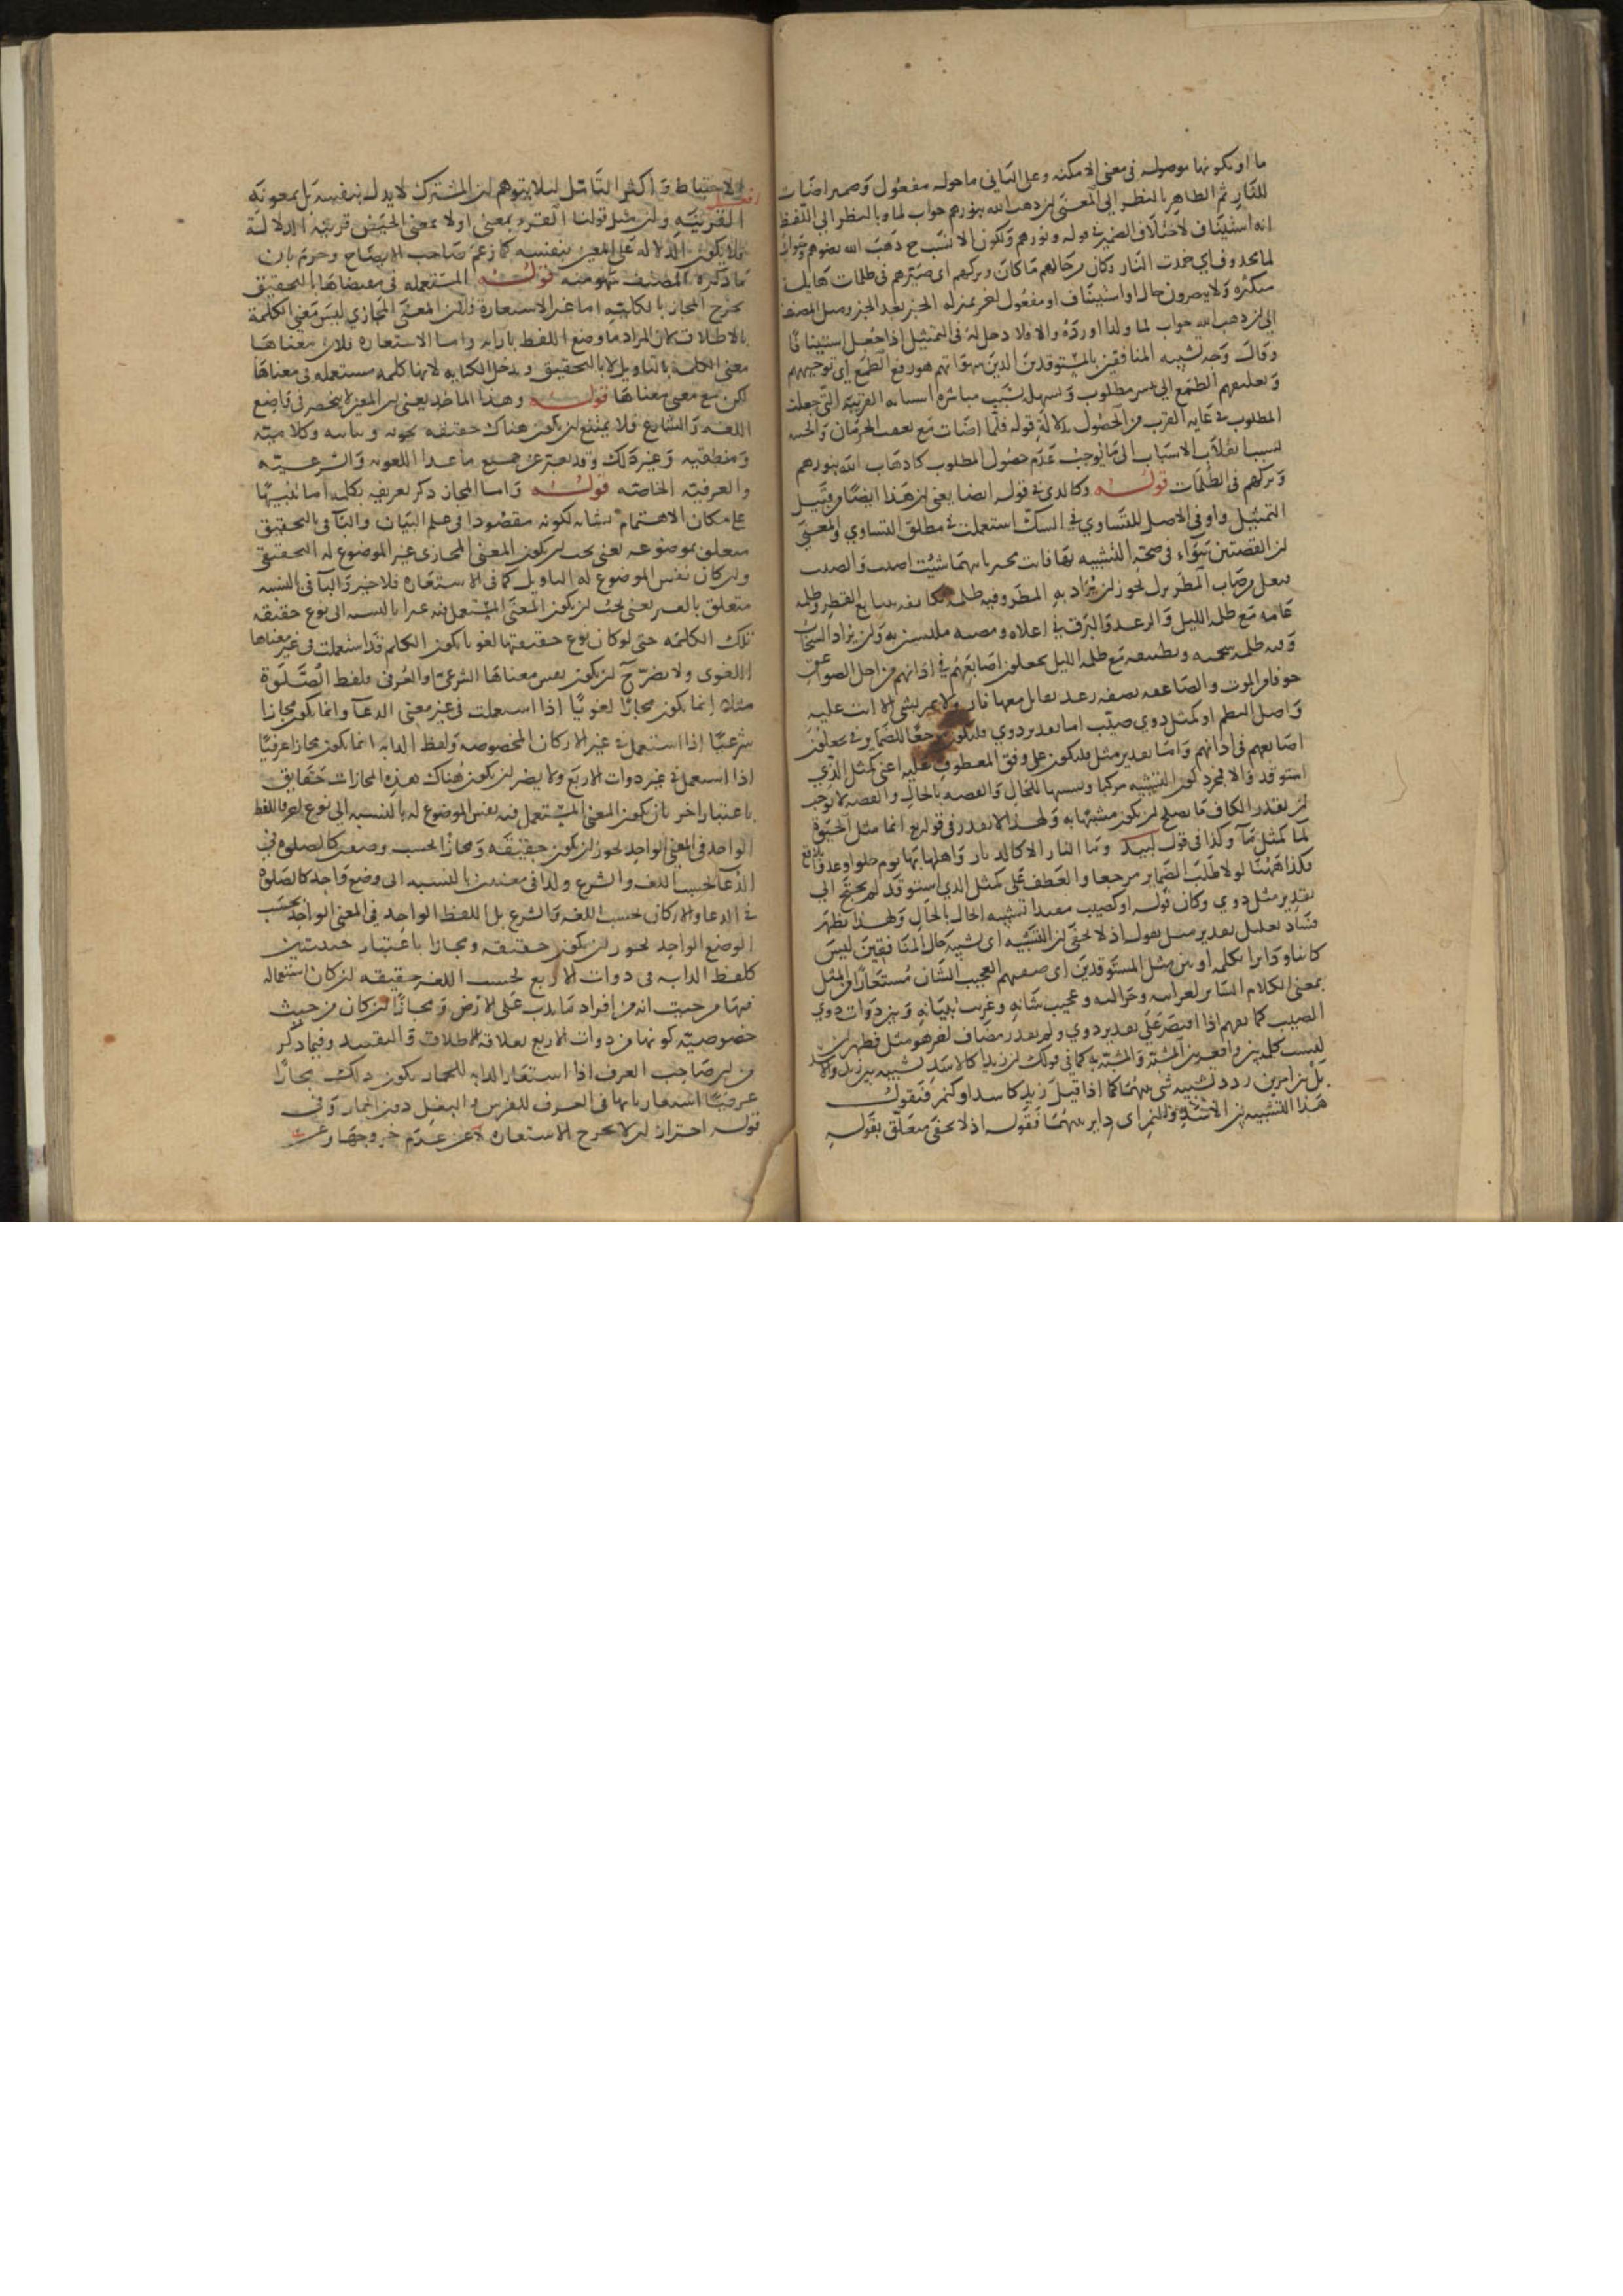 ما او بكونها موصوله فى معنى الامكنه وعلى الثانى ما حوله مفعول وضمير اضات
للنار ثم الظاهر بالنظر الى المعنى ان ذهب الله بنورهم جواب لما وبالنظر الى اللفظ
انه استيناف لاختلاف الضمير فى قوله ونورهم ويكون الانسب ح ذهب الله بضوءهم وجواب
لما محذوف اى خمدت النار وكان من حالهم ما كان وتركهم اى صيرهم فى ظلمات هايلة
متكثره ولا يبصرون حال او استيناف او مفعول اخر بمنزله الخبر بعد الخبر وميل المصنف
الى ان ذهب الله جواب لما ولذا اورده والا فلا دخل له فى التمثيل اذا جعل استينافا
وقال وجه تشبيه المنافقين بالمستوقدين الذين هو رفع الطمع اى توجيههم
وتعليقهم الطمع الى مطلوب بسبب مباشره اسبابه القريبة التى جعلت
المطلوب فى غاية القرب من الحصول بدلالة قوله فلما اضات مع تعقب الحرمان والخيبه
لسبب انقلاب الاسباب الى ما يوجب عدم حصول المطلوب كاذهاب الله بنورهم
وتركهم فى الظلمات قوله وكالذى فى قوله ايضا يعنى ان هذا ايضا من قبيل
التمثيل واو فى الاصل للتساوى فى الشك استعملت فى مطلق التساوى والمعنى
ان القصتين سواء فى صحة التشبيه بهما فانت مخير بايهما شئت اصبت والصيب
فيعل من صاب المطر نزل يجوز ان يراد به المطر وفيه ظلمة تكاثفه بتتابع القطر وظلمة
غمامه مع ظلمة الليل والرعد والبرق فى اعلاه ومصبه ملتبسين به وان يراد السحاب
وفيه ظلمة سحمته وتطبيقه مع ظلمة الليل يجعلون اصابعهم فى اذانهم من اجل الصواعق
خوفا من الموت والصاعقه قصفه رعد معها نار لا تمر بشى الا اتت عليه
واصل النظم او كمثل ذوى صيب اما تقدير ذوى فليكون مرجعا للضماير فى يجعلون
اصابعهم فى اذانهم واما تقدير مثل فليكون على وفق المعطوف عليه اعنى كمثل الذى
استوقد والا فمجرد كون التشبيه مركبا وتشبيها للحال والقصه بالحال والقصه لا يوجب
ان يقدر الكاف ما يصلح ان يكون مشبها به ولهذا لا يقدر فى قوله تع انما مثل الحيوة
كما كمثل ماء وكذا فى قول لبيد وما الناس الا كالديار واهلها بها يوم حلوها وغدوا بلاقع
فكذا ههنا لولا طلب الضماير مرجعا والعطف على كمثل الذى استوقد لم يحتج الى
تقدير مثل ذوى وكان قوله او كصيب مفيدا تشبيه الحال بالحال ولهذا يظهر
فساد تعليل تقدير مثل بقوله اذ لا يخفى ان التشبيه اى تشبيه حال المنافقين ليس
كاينا ودايرا بكلمه او بين مثل المستوقدين اى صفتهم العجيب الشان مستعارا من المثل
بمعنى الكلام الساير لغرابته وعجيب شانه وغريب بيانه وبين ذوات ذوى
الصيب كما يفهم اذا اقتصر على تقدير ذوى ولم يقدر مضاف اخر هو مثل فظهر ان
ليست كلمة بين واقعه بين المشبه والمشبه به كما فى قولك ان زيدا كالاسد تشبيه بين زيد والاسد
بل بين امرين ردد تشبيه شى بينهما كما اذا قيل زيد كاسد او كنمر فتقول
هذا التشبيه بين الاسد والنمر اى داير بينهما فقوله اذ لا يخفى متعلق بقوله
والاحتياط واكثر التامل ليلا يتوهم ان المشترك لا يدل بنفسه بل بمعونة
القرينه وان مثل قولنا القرء بمعنى او لا بمعنى الحيض قرينة الدلالة
فلا يكون الدلالة على المعنى بنفسه كما زعم صاحب الايضاح وجزم بان
ما ذكره المصنف سهو منه قوله المستعمله فى معناها بالتحقيق
يخرج المجاز بالكليه اما غير الاستعارة فلان المعنى المجازى ليس معنى الكلمة
بالاطلاق كان المراد ما وضع اللفظ بازايه واما الاستعاره فلان معناها
معنى الكلمة بالتاويل لا بالتحقيق ويدخل الكنايه لانها كلمه مستعمله فى معناها
لكن مع معنى معناها قوله وهذا الماخذ يعنى ان المعين لا ينحصر فى واضع
اللغه والشارع فلا يمتنع ان يكون هناك حقيقه نحويه وبيانيه وكلاميه
ومنطقيه وغير ذلك وقد يعبر عن جميع ما عدا اللغويه والشرعيه
والعرفيه الخاصه قوله واما المجاز ذكر تعريفه بكلمة اما تنبيها
على مكان الاهتمام بشانه لكونه مقصودا فى علم البيان والباء فى بالتحقيق
متعلق بموضوعه يعنى يجب ان يكون المعنى المجازى غير الموضوع له التحقيقى
وان كان نفس الموضوع له التاويلى كما فى الاستعاره فلا خير والباء فى بالنسبه
متعلق بالغير يعنى يجب ان يكون المعنى المستعمل فيه غيرا بالنسبه الى نوع حقيقه
تلك الكلمه حتى لو كان نوع حقيقتها لغويا يكون الكلمه قد استعملت فى غير معناها
اللغوى ولا يضر ح ان يكون نفس معناها الشرعى او العرفى فلفظ الصلوة
مثلا انما يكون مجازا لغويا اذا استعملت فى غير معنى الدعاء وانما يكون مجازا
شرعيا اذا استعمل فى غير الاركان المخصوصه ولفظ الدابه انما يكون مجازا عرفيا
اذا استعمل فى غير ذوات الاربع ولا يضر ان يكون هناك هذه المجازات حقايق
باعتبار اخر بان يكون المعنى المستعمل فيه نفس الموضوع له بالنسبه الى نوع اخر فاللفظ
الواحد فى المعنى الواحد يجوز ان يكون حقيقه ومجازا بحسب وضعين كالصلوه فى
الدعا بحسب اللغه والشرع ولذا فى معنيين بالنسبه الى وضع واحد كالصلوة
فى الدعا والاركان بحسب اللغه والشرع بل اللفظ الواحد فى المعنى الواحد بحسب
الوضع الواحد يجوز ان يكون حقيقه ومجازا باعتبار حيثيتين
كلفظ الدابه فى ذوات الاربع بحسب اللغه حقيقه ان كان استعماله
فيها من حيث انه من افراد ما يدب على الارض ومجازا ان كان من حيث
خصوصيه كونها من ذوات الاربع بعلاقه الاطلاق والتقييد وفيما ذكر
من ان صاحب العرف اذا استعار الدابه للحمار يكون ذلك مجازا
عرفيا اشعار بانها فى العرف للفرس والبغل دون الحمار وفى
قوله احتراز ان لا يخرج الاستعاره لا عن عدم خروجها وعن